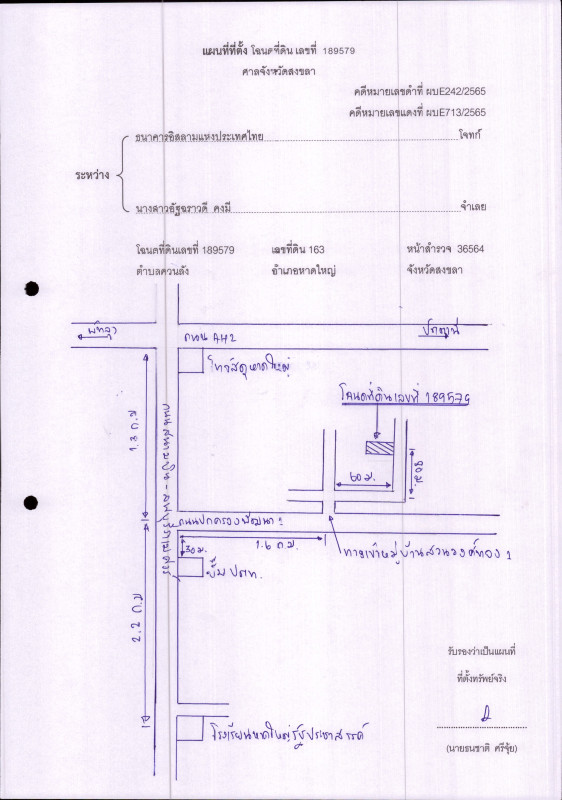 แผนที่ที่ตั้ง โฉนดที่ดิน เลขที่ 189579
ศาลจังหวัดสงขลา
คดีหมายเลขดำที่ ผบE242/2565
คดีหมายเลขแดงที่ ผบE713/2565
ธนาคารอิสลามแห่งประเทศไทย โจทก์
ระหว่าง
นางสาวอัฐฉราวดี คงมี จำเลย
โฉนดที่ดินเลขที่ 189579 เลขที่ดิน 163 หน้าสำรวจ 36564
ตำบลควนลัง อำเภอหาดใหญ่ จังหวัดสงขลา
พัทลุง
ถนน AH2
ปัตตานี
ไทวัสดุหาดใหญ่
โฉนดที่ดินเลขที่ 189579
1.8 ก.ม
60 ม.
80 ม.
ถนนปกครองพัฒนา 2
1.6 ก.ม
30 ม.
ทางเข้าหมู่บ้านสวนวงศ์ทอง 1
ปั๊ม ปตท.
2.2 ก.ม
รับรองว่าเป็นแผนที่
ที่ตั้งทรัพย์จริง
โรงเรียนหาดใหญ่รัฐประชาสรรค์
(นายธนชาติ ศรีจุ้ย)